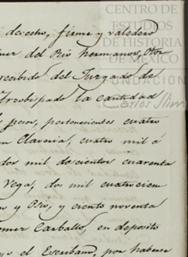 derecho, firme y valedero
del Rio hermanos, Otra
recibido del Juzgado de
Arzobispado la cantidad
pesos, pertenecientes cuatro
Clavería, cuatro mil á
dos mil doscientos cuarenta
Vega, dos mil cuatrocien
y Pro, y ciento noventa
Carballo, en deposito
el Escribano, por haberse
CENTRO DE
ESTUDIOS
DE HISTORIA
DE MÉXICO
FUNDACIÓN
Carlos Slim